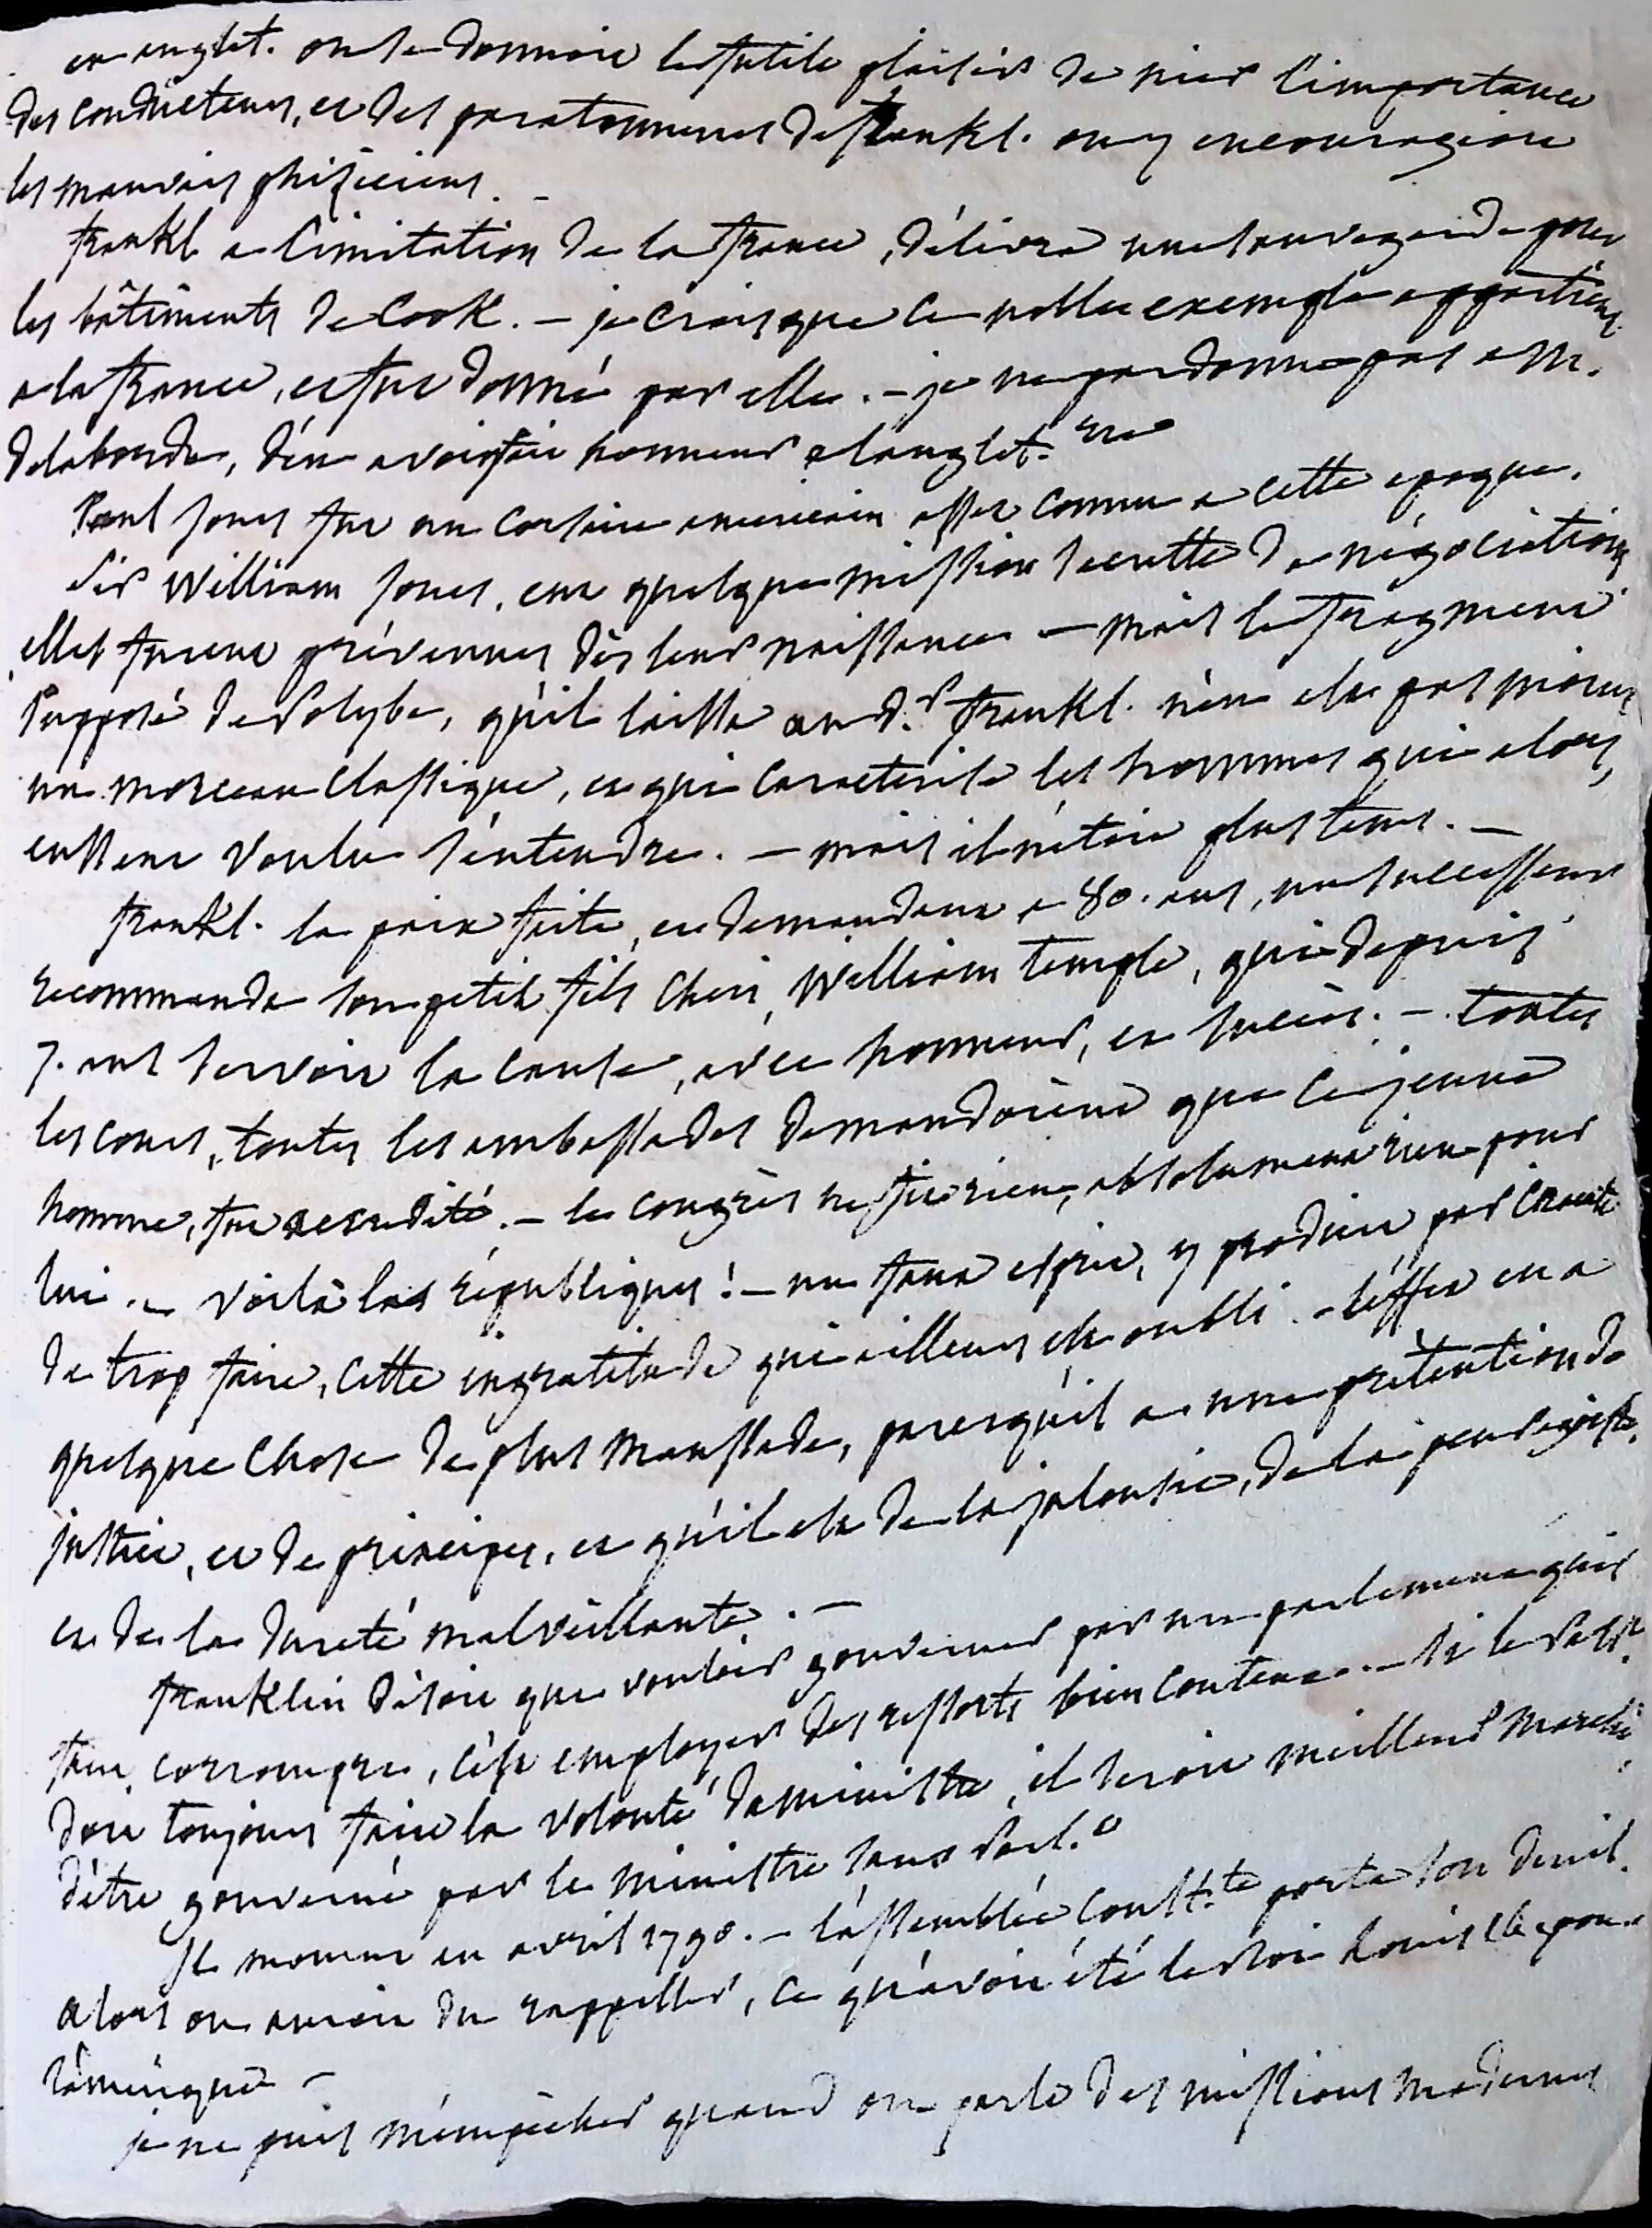 en anglet. on se donnoit le futile plaisir de nier l'importance
des conducteurs, et des paratonnerres de frankl. on y encourageoit
les mauvais phisiciens. –
frankl. a l'imitation de la france, délivra une sauvegarde pour
les bâtiments de Cook. – je crois que ce noble exemple appartient
a la france, et fut donné par elle. – je ne pardonne pas a M.
delaborde, d'en avoir fait honneur a l'anglet.rre
Paul Jones fut un corsaire americain assez connu a cette epoque.
Sir William Jones, eut quelque mission secrette de négociations
elles furent prévenues dès leur naissance – mais le fragment
supposé de Polybe, qu'il laissa au d.r frankl. n'en est pas moins
un morceau classique, et qui caracterise les hommes qui alors,
eussent voulu s'entendre. – mais il n'étoit plus tems. –
frankl. la paix faite, et demandant a 80. ans, un successeur
recommanda son petit fils cheri, William temple, qui depuis
7. ans servoit la cause, avec honneur, et succès. – toutes
les cours, toutes les ambassades demandoient que ce jeune
homme, fut accrédité. – le congrès ne fit rien, absolument rien pour
lui. – voilà les républiques! – un faux esprit, y produit par crainte
de trop faire, cette ingratitude qui ailleurs est oubli. – l'effet en a
quelque chose de plus maussade, parcequ'il a une prétention de
justice, et de principes, et qu'il est de la jalousie, de la peur egoiste,
et de la dureté malveillante. –
franklin disoit que vouloir gouverner par un parlement qu'il
faut corrompre, c'est employer des ressorts bien couteux. – si le Parl.t
doit toujours faire la volonté du ministre, il seroit meilleur marché
d'être gouverné par le ministre sans Parl.t
Il mourut en avril 1790. – l'assemblée const.te porta son deuil.
alors on auroit du rappeller, ce qu'avoit été le Roi Louis 16 pour
l'amérique –
je ne puis m'empêcher quand on parle des missions modernes